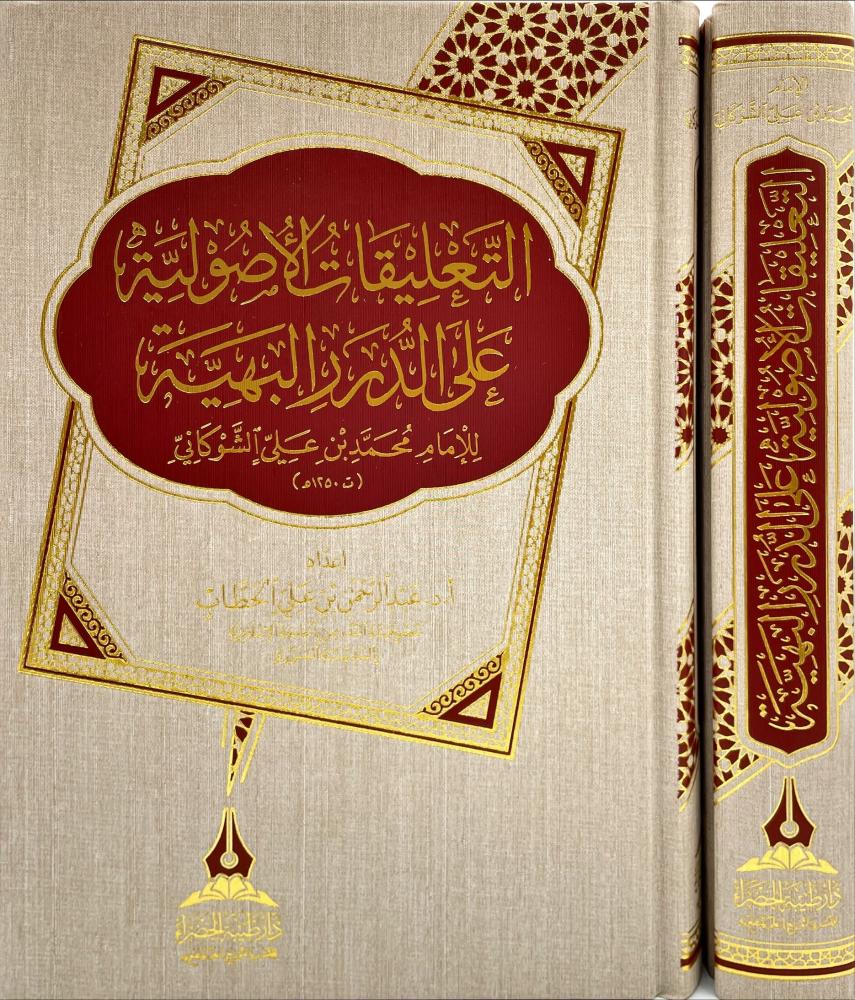 التَّعْلِيقَاتُ الأُصُولِيَّة
عَلَى الدُّرَرِ البَهِيَّة
لِلإِمَامِ مُحَمَّد بْنِ عَلِيّ الشَّوْكَانِيّ
(ت ١٢٥٠هـ)
إعداد
أ.د. عبد الرحمن بن علي الحطاب
بالمدينة النبوية
دار طيبة الخضراء
الإمام
محمد بن علي الشوكاني
التَّعْلِيقَاتُ الأُصُولِيَّة عَلَى الدُّرَرِ البَهِيَّة
دار طيبة الخضراء